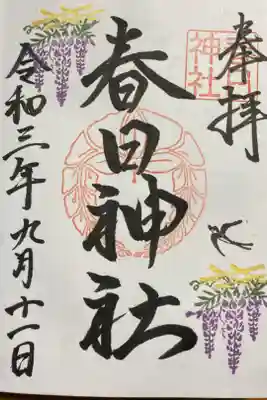 奉拝
春日神社
春日神社
令和三年九月十一日